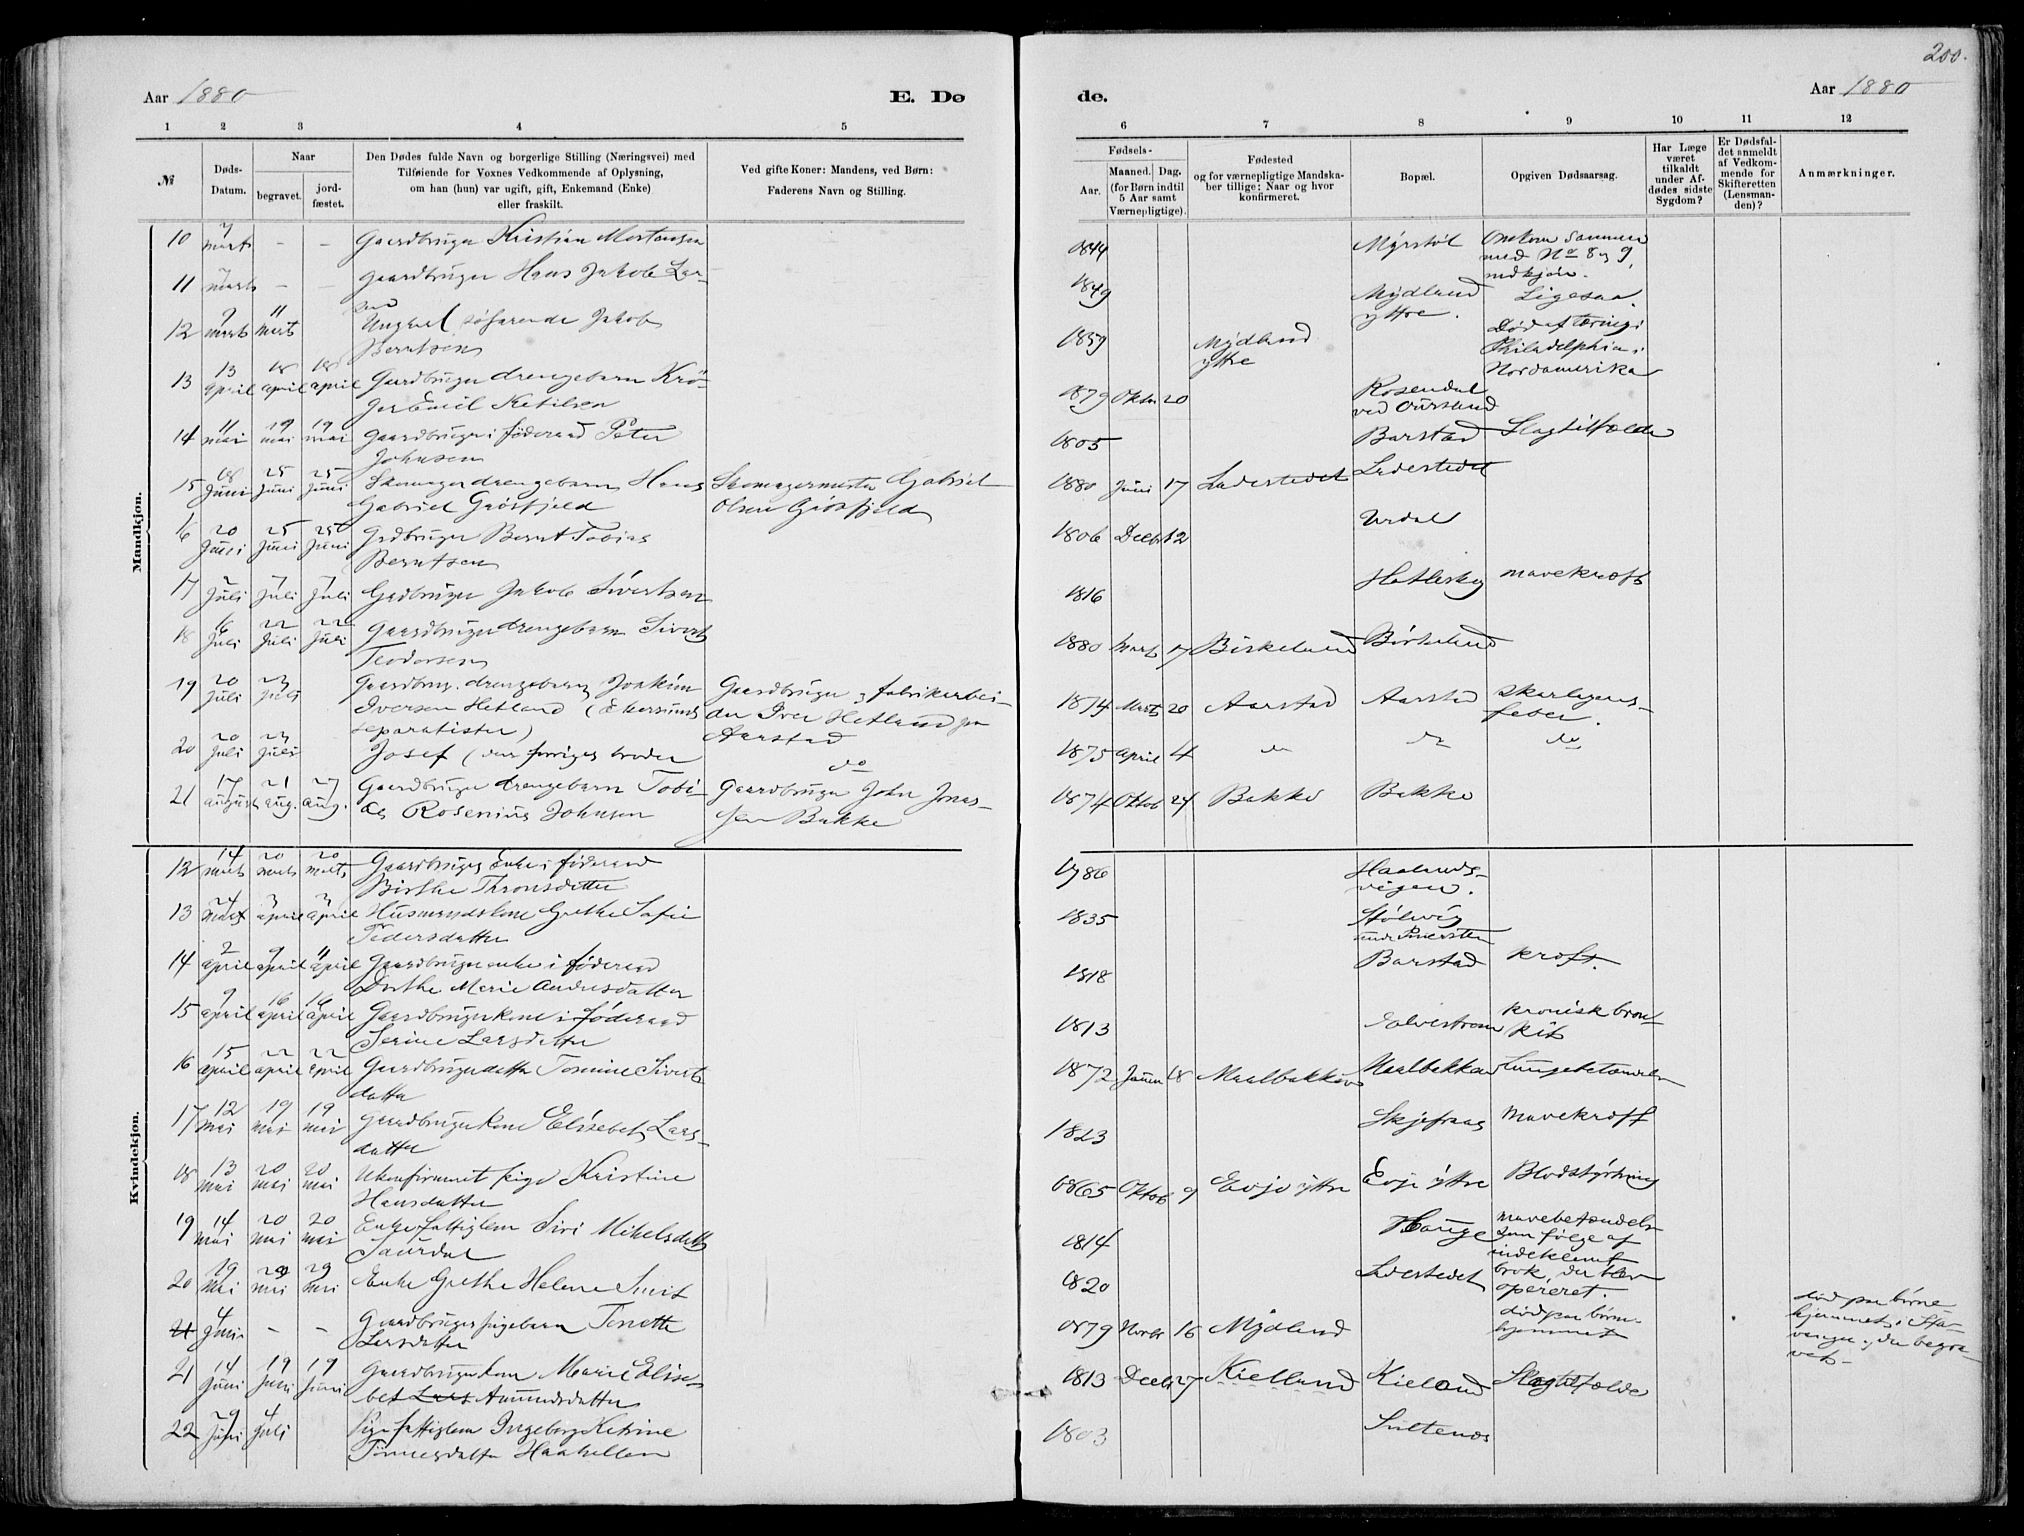 200.
Aar 1880
E. Dø
de.
Aar 1880
1 2 3 4 5 6 7 8 9 10 11 12
№
Døds-
Datum.
Naar
begravet.
jord-
fæstet.
Den Dødes fulde Navn og borgerlige Stilling (Næringsvei) med
Tilføiende for Voxnes Vedkommende af Oplysning,
om han (hun) var ugift, gift, Enkemand (Enke)
eller fraskilt.
Ved gifte Koner: Mandens, ved Børn:
Faderens Navn og Stilling.
Fødsels-
Aar.
Maaned. Dag.
(for Børn indtil
5 Aar samt
Værnepligtige).
Fødested
og for værnepligtige Mandska-
ber tillige: Naar og hvor
konfirmeret.
Bopæl.
Opgiven Dødsaarsag.
Har Læge
været
tilkaldt
under Af-
dødes sidste
Sygdom?
Er Dødsfal-
det anmeldt
af Vedkom-
mende for
Skifteretten
(Lensman-
den)?
Anmærkninger.
Mandkjøn.
10 7 marts - - Gaardbruger Kristian Mortensen 1844 Myrstøl Omkom sammen
med No 8 og 9
11 7 marts - - Gaardbruger Hans Jakob Lar-
sen 1849 Mydland
yttre. Ligesaa.
12 7 marts 11 marts Ungkarl, søfarende Jakob
Berntsen 1859 Mydland
yttre Død af tæring i
Philadelphia i
Nordamerika
13 13 april 18 april 18 april Gaardbruger drengebarn Krö-
ger Emil Ketilsen 1879 Oktbr 20 Rosendal
ved
14 11 mai 19 mai 19 mai Gaardbruger i føderaad Peter
Johnsen 1805 Barstad Slagtilfælde
15 18 Juni 25 Juni 25 Juni Skomager drengebarn Hans
Gabriel Grøsfjeld Skomagermester Gabriel
Olsen Grøsfjeld 1880 Juni 17 Ladestedet Ladestedet
16 20 Juni 25 Juni 25 Juni Grdbruger Bernt Tobias
Berntsen 1806 Decbr 12 Urdal
17 2 Juli 7 Juli 7 Juli Grdbruger Jakob Sivertsen 1816 mavekræft
18 16 Juli 22 Juli 22 Juli Gaardbruger drengebarn Sivert
Teodorsen 1880 Mart 17 Birkeland Birkeland
19 20 Juli 23 Juli Gaardbrug. drengebarn Joakim
Iversen Hetland (Ekersunds
separatister) Gaardbruger og fabrikarbei-
der Iver Hetland paa
Aarstad 1874 Marts 20 Aarstad Aarstad Skarlagens-
feber.
20 20 Juli 23 Juli Josef (den forriges broder do 1875 April 4 do do do
21 17 august 21 aug. 27 aug. Gaardbruger drengebarn Tobi-
as Rosenius Johnsen Gaardbruger John Jonas-
sen Bakke 1874 Oktob 24 Bakke Bakke
Kvindekjøn.
12 14 marts 20 marts 20 marts Gaardbrugers Enke i føderaad
Birthe Thronsdatter 1786 Haalands-
vigen.
13 24 Mart 3 april 3 april Husmandskone Grethe Sofie
Pedersdatter 1835 Stølsvig
14 2 april 9 april april Gaardbruger enke i føderaad
Dorthe Marie Andersdatter 1818 Barstad kræft.
15 9 april 16 april 16 april Gaardbrugerkone i føderaad
Serine Larsdatter 1813 kronisk bron-
kit
16 15 april 22 april 22 april Gaardbrugerdatter Tomine Siverts
datter 1872 Januar 18 Maalbakken Maalbakken Lungebetændelse
17 12 mai 19 mai 19 mai Gaardbrugerkone Elisebet Lars-
datter 1823 Skjefraas Mavekræft
18 13 mai 20 mai 20 mai Ukonfirmeret pige Kristine
Hansdatter 1865 Oktob 9 Evje yttre Evje yttre Blodstyrtning
19 14 mai 20 mai 20 mai Enke fattiglem Siri Mikelsdatter
Saurdal 1814 Hauge mavebetændelse
som følge af
indeklemt
brok, der blev
opereret.
20 19 Mai 29 mai 29 mai Enke Grethe Helene Smit 1820 Ladestedet
21 4 Juni - - Gaardbrugers pigebarn Tonette
Larsdatter 1879 Novbr 16 Mydland død paa børne-
hjemmet død paa børne
hjemmet i Sta-
vanger, der begra-
vet.
21 14 Juni 19 Juni 19 Juni Gaardbrugerkone Marie Elise-
bet Lars Amundsdatter 1813 Decbr 27 Kielland Kieland Slagtilfælde
22 29 Juni 4 Juli Pige fattiglem Ingeborg Katrine
Tønnesdatter Haahellem 1803